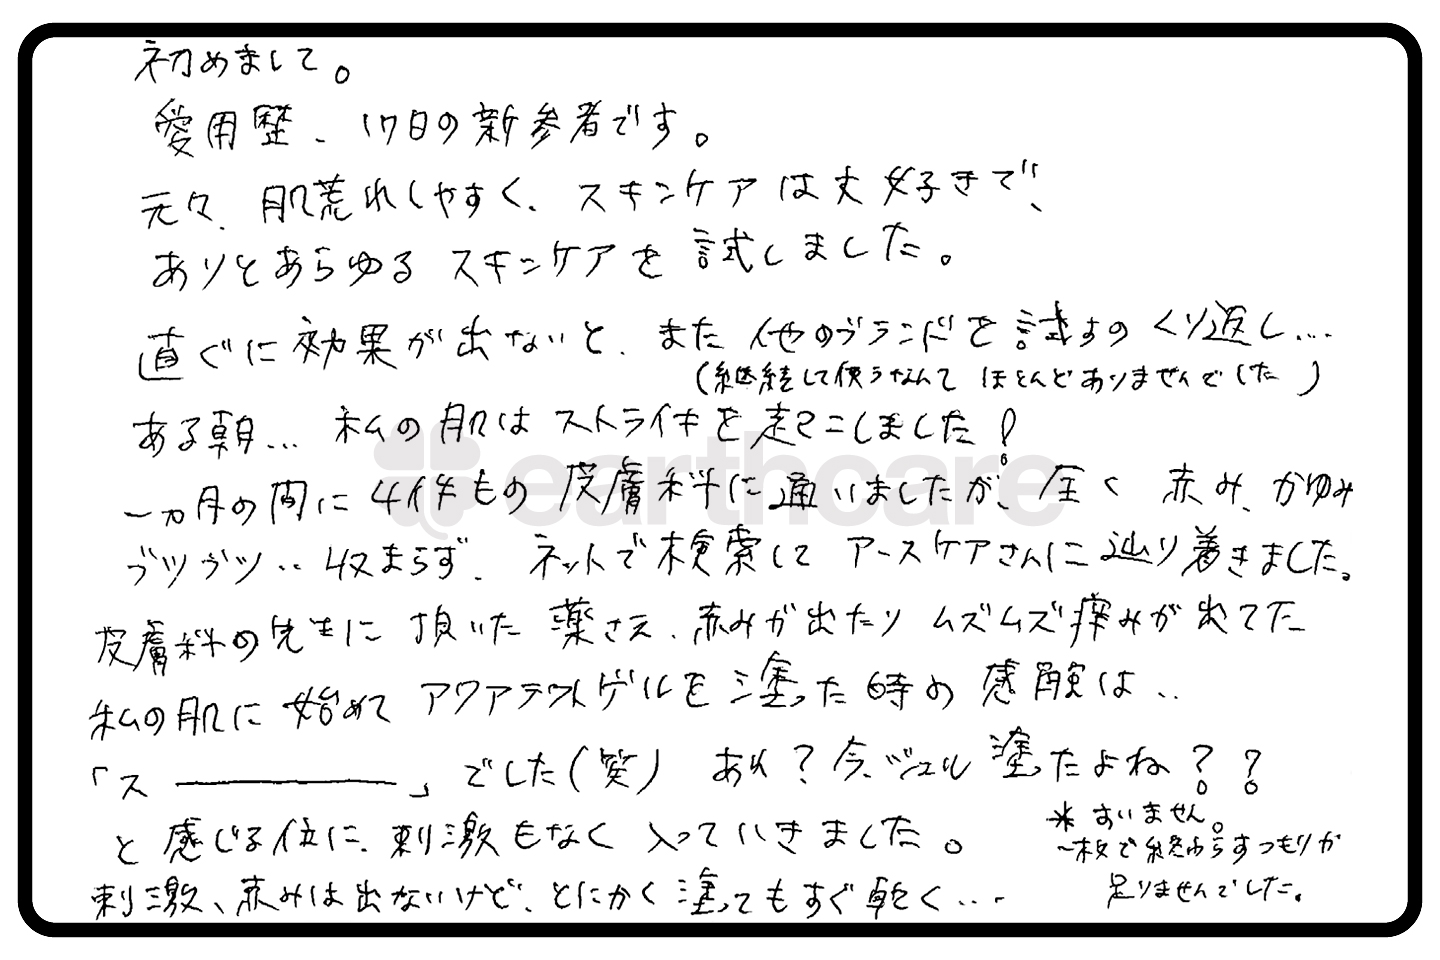 初めまして。
愛用歴、17日の新参者です。
元々、肌荒れしやすく、スキンケアは大好きで、
ありとあらゆるスキンケアを試しました。
直ぐに効果が出ないと、また他のブランドを試すのくり返し…
(継続して使うなんてほとんどありませんでした)
ある朝…私の肌はストライキを起こしました!
earthcare
一ヵ月の間に4件もの皮膚科に通いましたが、全く赤み、かゆみ
ブツブツ‥収まらず、ネットで検索してアースケアさんに辿り着きました。
皮膚科の先生に頂いた薬さえ、赤みが出たりムズムズ痒みが出てた
私の肌に始めてアクアテクトゲルを塗った時の感験は‥
「スーーーーー」でした(笑) あれ?今、ジェル塗ったよね??
と感じる位に、刺激もなく入っていきました。
刺激、赤みは出ないけど、とにかく塗ってもすぐ乾く…
*すいません。
一枚で終わらすつもりが
足りませんでした。